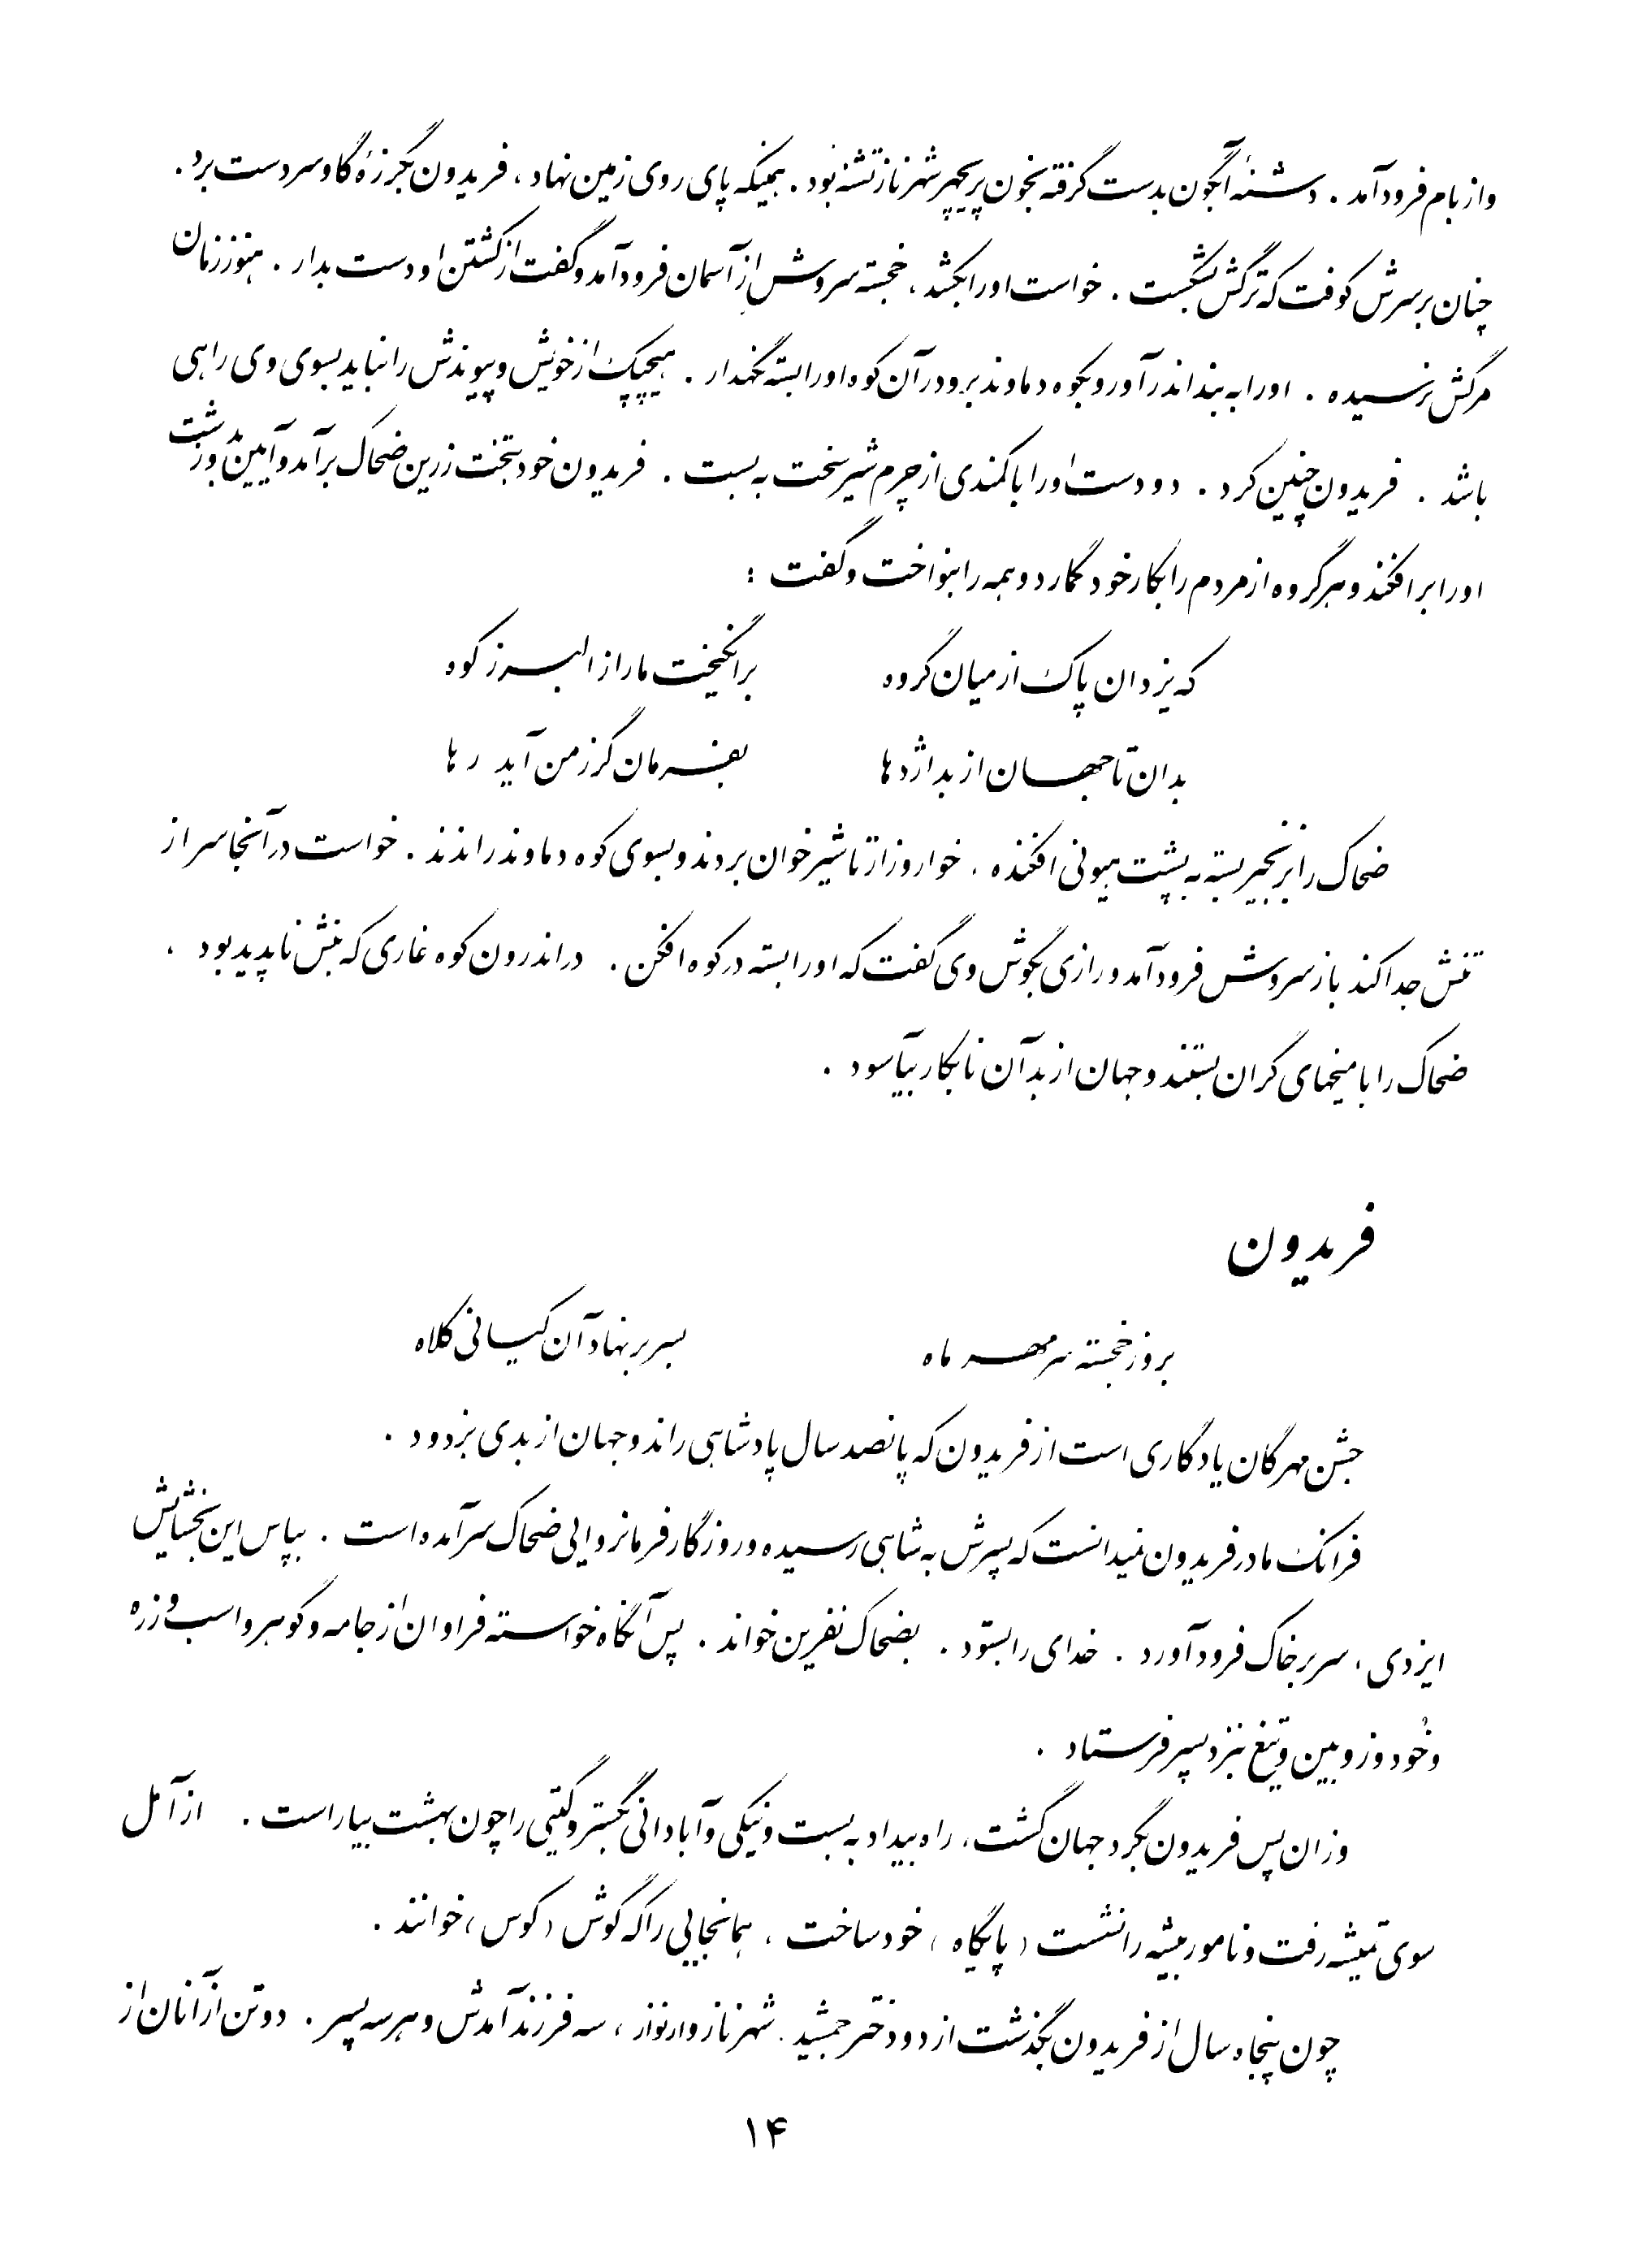 و از بام فرود آمد . دشنهٔ آبگون بدست گرفته بخون پریچهر شهرناز تشنه بود . همینکه پای روی زمین نهاد ، فریدون بگرزهٔ گاوسر دست برد .
چنان بر سرش کوفت که ترگش بشکست . خواست او را بکشد ، خجسته سروش از آسمان فرود آمد و گفت از کشتن او دست بدار . هنوز زمان
مرگش نرسیده . او را به بند اندر آور و بکوه دماوند برو در آن کوه او را بسته نگهدار . هیچیک از خویش و پیوندش را نباید بسوی وی راهی
باشد . فریدون چنین کرد . دو دست او را با کمندی از چرم شیر سخت به بست . فریدون خود بتخت زرین ضحاک برآمد و آیین بد و زشت
او را برافکند و هر گروه از مردم را بکار خود گمارد و همه را بنواخت و گفت :
که یزدان پاک از میان گروه    برانگیخت ما را ز البرز کوه
بدان تا جهان از بد اژدها    بفرمان گرز من آید رها
ضحاک را بزنجیر بسته به پشت هیونی افکنده . خوار و زار تا شیرخوان بردند و بسوی کوه دماوند راندند . خواست در آنجا سر از
تنش جدا کند باز سروش فرود آمد و رازی بگوش وی گفت که او را بسته در کوه افکن . در اندرون کوه غاری که بنش ناپدید بود ،
ضحاک را با میخهای گران بستند و جهان از بد آن نابکار بیآسود .
فریدون
بروز خجسته سر مهر ماه    بسر بر نهاد آن کیانی کلاه
جشن مهرگان یادگاری است از فریدون که پانصد سال پادشاهی راند و جهان از بدی بزدود .
فرانک مادر فریدون نمیدانست که پسرش به شاهی رسیده و روزگار فرمانروایی ضحاک سرآمده است . بپاس این بخشایش
ایزدی ، سر بر خاک فرود آورد . خدای را بستود . بضحاک نفرین خواند . پس آنگاه خواسته فراوان از جامه و گوهر و اسب و زره
و خُود و زوبین و تیغ بنزد پسر فرستاد .
وزان پس فریدون بگرد جهان گشت ، راه بیداد به بست و نیکی و آبادانی بگسترد و گیتی را چون بهشت بیاراست . از آمل
سوی تمیشه رفت و نامور بیشه را نشست ( پایگاه ) خود ساخت ، همانجایی را که گوش ( کوس ) خوانند .
چون پنجاه سال از فریدون بگذشت از دو دختر جمشید . شهرناز و ارنواز ، سه فرزند آمدش و هر سه پسر . دو تن از آنان از
۱۴